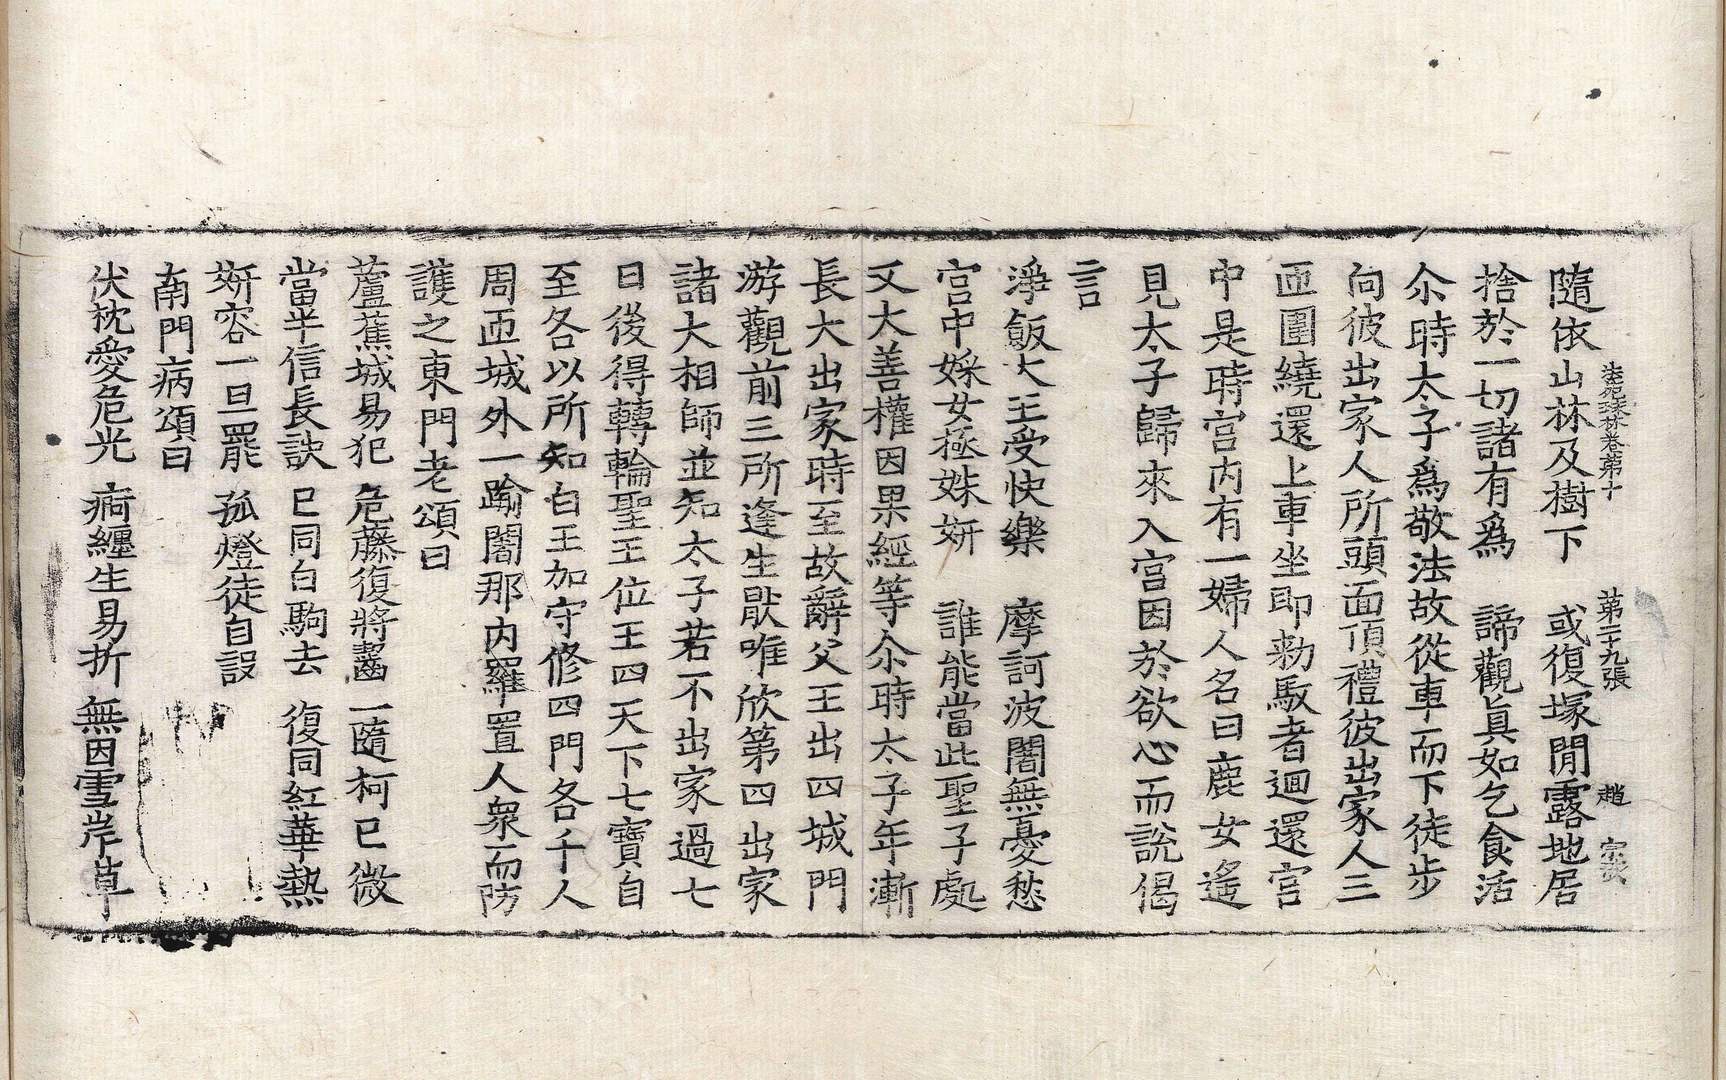 法苑珠林卷第十 第二十九張 趙
隨依山林及樹下 或復塚閒露地居
捨於一切諸有爲 諦觀眞如乞食活
尒時太子爲敬法故從車而下徒步
向彼出家人所頭面頂禮彼出家人三
匝圍繞還上車坐卽勑馭者迴還宫
中是時宫內有一婦人名曰鹿女遙
見太子歸來入宫因於欲心而說偈
言
淨飯大王受快樂 摩訶波闍無憂愁
宫中婇女極姝妍 誰能當此聖子處
又大善權因果經等尒時太子年漸
長大出家時至故辭父王出四城門
游觀前三所逢生猒唯欣第四出家
諸大相師並知太子若不出家過七
日後得轉輪聖王位王四天下七寶自
至各以所知白王加守修四門各千人
周匝城外一踰闍那內羅置人衆而防
護之東門老頌曰
蘆蕉城易犯 危藤復將齧 一隨柯已微
當半信長訣 已同白駒去 復同紅華熱
妍容一旦罷 孤燈徒自設
南門病頌曰
伏枕愛危光 痾纏生易折 無因雪岸草